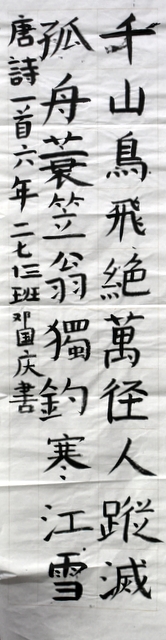 千山鳥飛絕萬径人蹤滅
孤舟蓑笠翁獨釣寒江雪
唐詩一首六年二七仨班邓国庆書